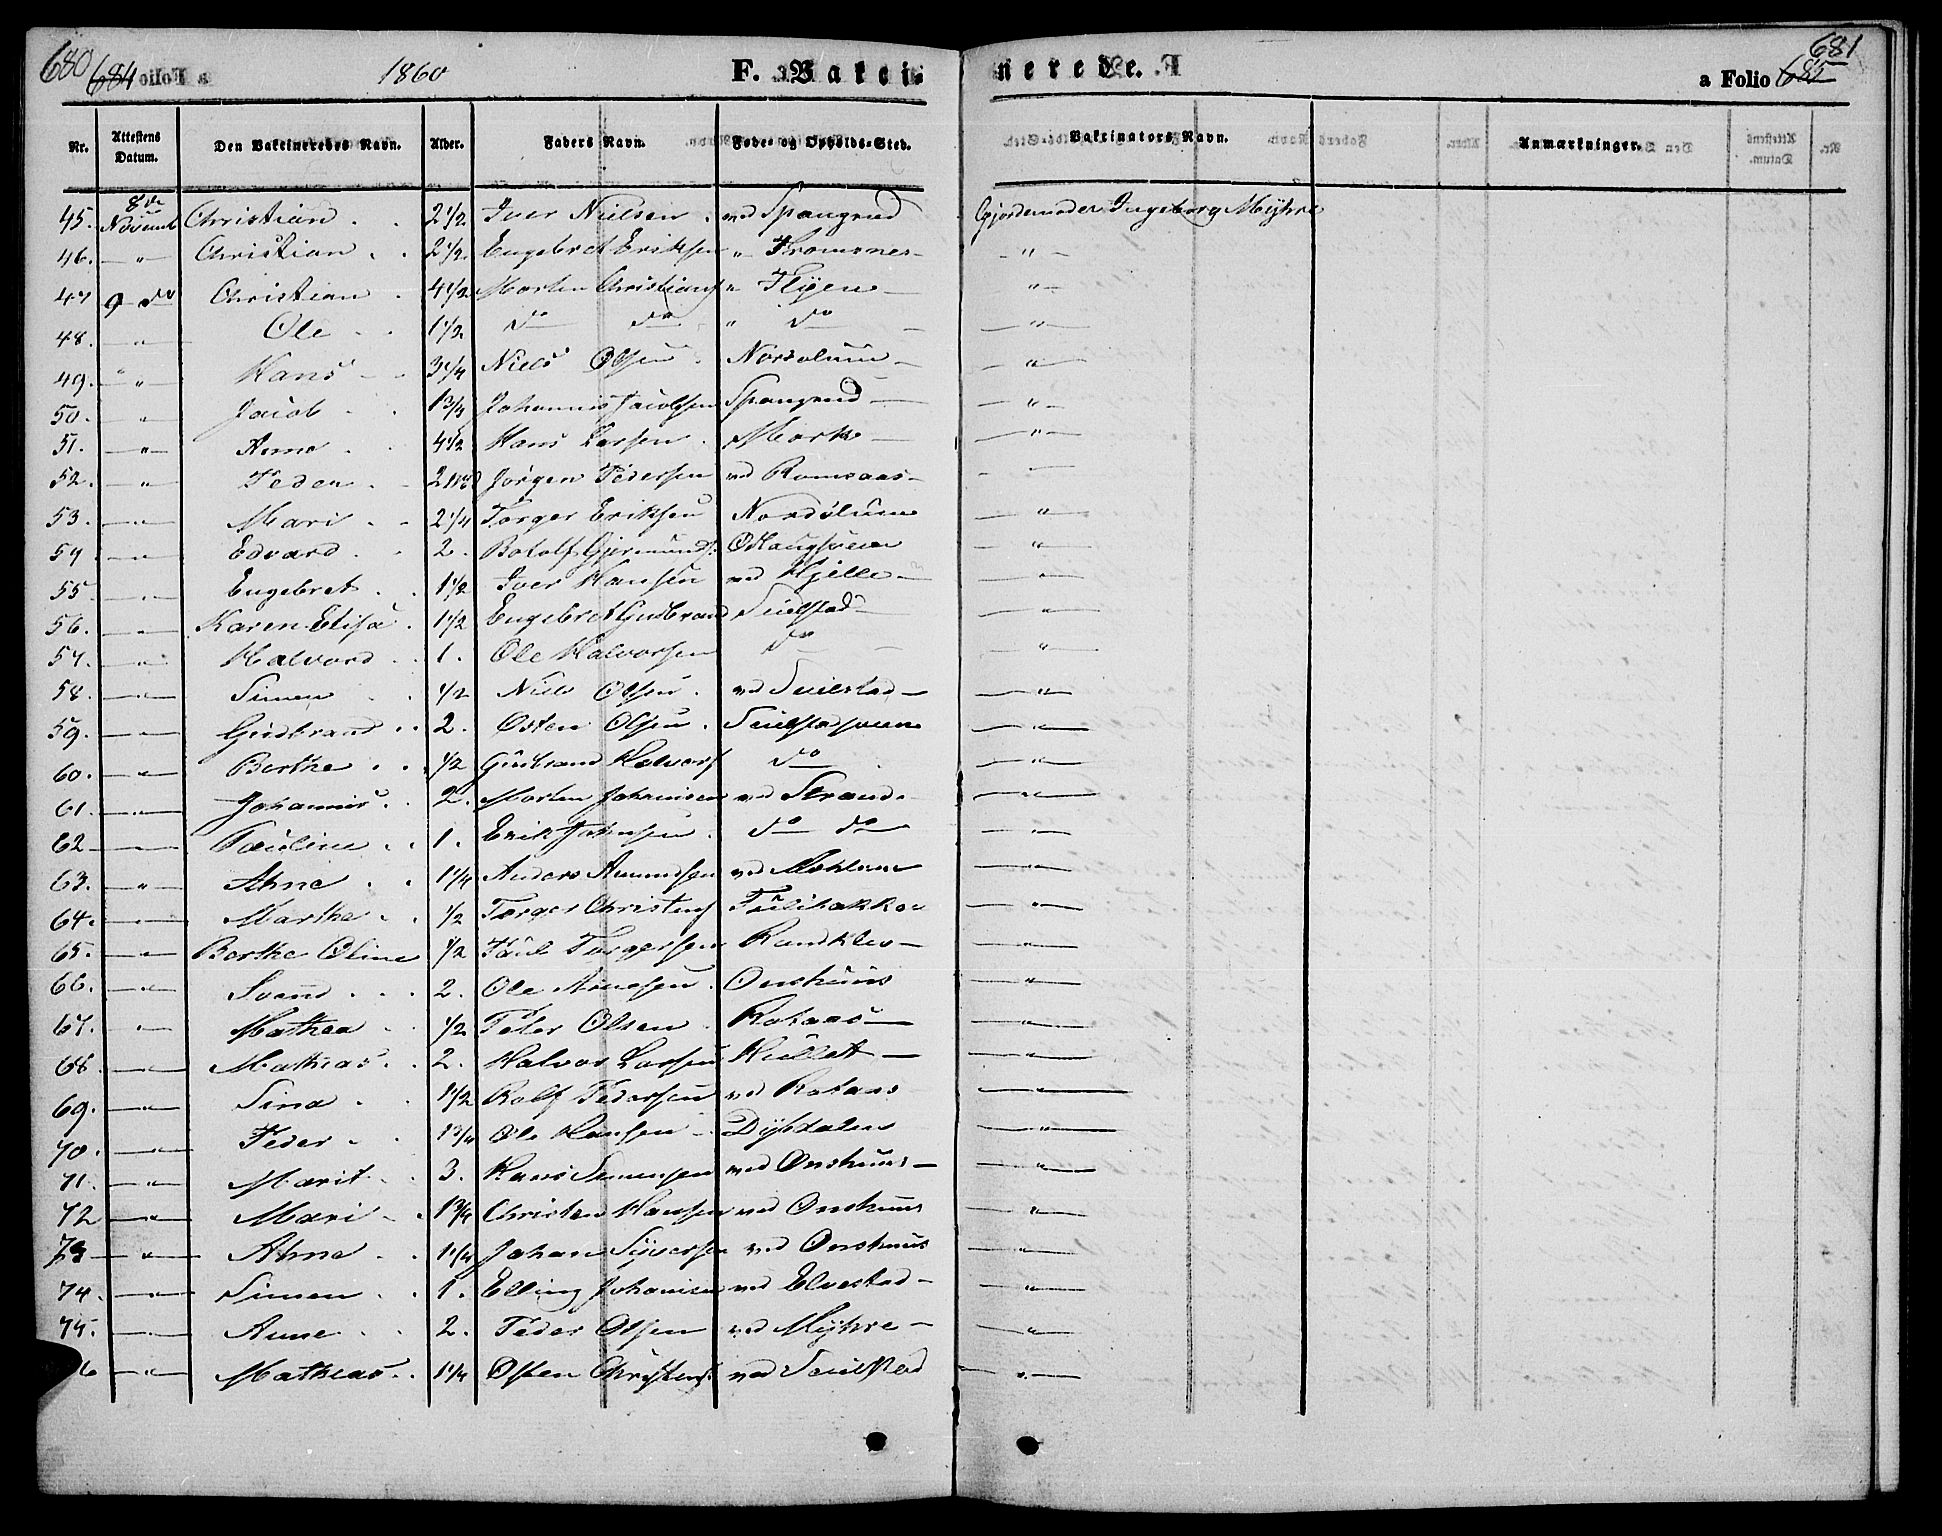 680 684 a Folio 1860 F. Vakci
nerede. a Folio 685 681
Nr. Attestens Datum. Den Vakcineredes Navn. Alder. Faders Navn. Fødes og Opholds-Sted. Vakcinators Navn. Anmærkninger.
45. 8de Novemb Christian 2 1/2 Iver Nielsen ved Spangrud Gjordemoder Ingeborg Myhre
46. " Christian 2 1/2 Engebret Eriksen " Fromsnes "
47 9 do Christian 4 1/2 Morten Christians " Flyen "
48. " Ole 1 1/2 do do " do "
49. " Hans 3 1/4 Niels Olsen Nordolum "
50. " Jacob 1 3/4 Johannes Jacobsen Spangrud "
51. " Arne 4 1/2 Hans Larsen Morke "
52. " Peder 2 Jørgen Pedersen ved Romsaas
53. " Mari 2 1/4 Torger Eriksen Nordolum "
54. " Edvard 2. Botolf Gjermunds. "
55. " Engebret 1 1/2 Iver Hansen ved Hjelle "
56. " Karen Elisa 1 1/2 Engebret Gudbrand Seielstad "
57. " Halvord 1. Ole Halvorsen do "
58. " Simen 1/2 Niels Olsen ved Seielstad "
59. " Gudbrand 2. Østen Olsen Seielstadsveen "
60. " Berthe 1/2 Gudbrand Halvors do "
61. " Johannes 2. Morten Johansen ved Strand "
62 " Pauline 1. Erik Johnsen do do "
63. " Ahne 1 1/4 Anders Amundsen ved "
64. " Marthe 1/2 Torger Christens "
65. " Berthe Oline 1/2 Paul Torgersen Randklev "
66. " Svend 2. Ole Arnesen Onshuus "
67. " Mathea 1/2 Peter Olsen Rotaas "
68. " Mathias 2. Halvor Larsen Hullet "
69. " Sina 1 1/2 Rolf Pedersen ved Rotaas "
70. " Peder 1 3/4 Ole Hansen Dybdalen "
71. " Marit 3. Hans Simensen ved Onshuus "
72 " Mari 1 3/4 Christen Hansen ved Onshuus "
73 " Ahne 1 1/4 Johan Syversen ved Onshuus "
74. " Simen 1. Elling Johansen ved Elvestad "
75. " Anne 2. Peder Olsen ved Myhre "
6 " Mathias 1 1/4 Osten Christens ved Seielstad "